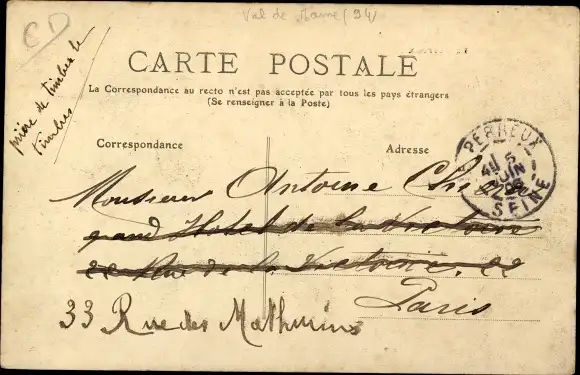 Val de Marne (94)
CD
prière de timbrer le
timbre
CARTE POSTALE
La Correspondance au recto n'est pas acceptée par tous les pays étrangers
(Se renseigner à la Poste)
Correspondance
Adresse
PERREUX
5
JUIN
SEINE
Monsieur Antoine
grand Hotel de la Victoire
Rue de la Victoire
Paris
33 Rue des Mathurins